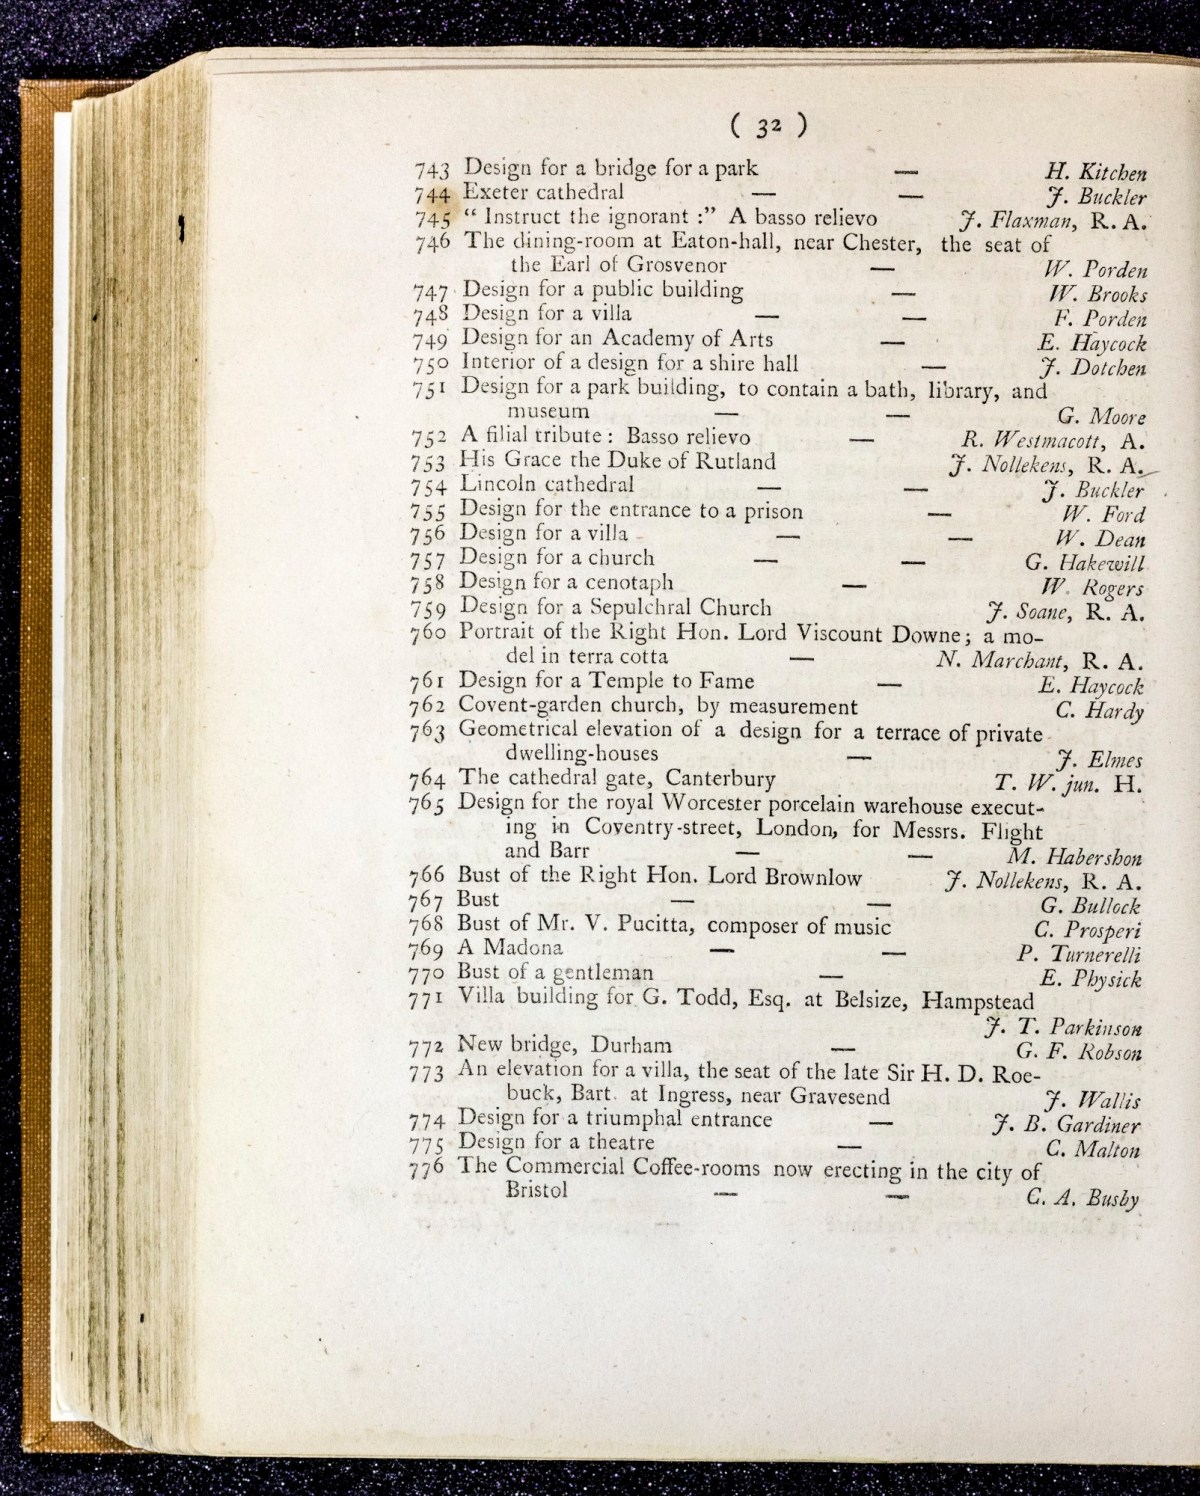 ( 32 )
743 Design for a bridge for a park — H. Kitchen
744 Exeter cathedral — — J. Buckler
745 “ Instruct the ignorant :” A basso relievo J. Flaxman, R. A.
746 The dining-room at Eaton-hall, near Chester, the seat of
the Earl of Grosvenor — W. Porden
747 Design for a public building — W. Brooks
748 Design for a villa — — F. Porden
749 Design for an Academy of Arts — E. Haycock
750 Interior of a design for a shire hall — J. Dotchen
751 Design for a park building, to contain a bath, library, and
museum — — G. Moore
752 A filial tribute : Basso relievo — R. Westmacott, A.
753 His Grace the Duke of Rutland J. Nollekens, R. A.
754 Lincoln cathedral — — J. Buckler
755 Design for the entrance to a prison — W. Ford
756 Design for a villa — — W. Dean
757 Design for a church — — G. Hakewill
758 Design for a cenotaph — W. Rogers
759 Design for a Sepulchral Church J. Soane, R. A.
760 Portrait of the Right Hon. Lord Viscount Downe; a mo-
del in terra cotta — N. Marchant, R. A.
761 Design for a Temple to Fame — E. Haycock
762 Covent-garden church, by measurement C. Hardy
763 Geometrical elevation of a design for a terrace of private
dwelling-houses — J. Elmes
764 The cathedral gate, Canterbury T. W. jun. H.
765 Design for the royal Worcester porcelain warehouse execut-
ing in Coventry-street, London, for Messrs. Flight
and Barr — — M. Habershon
766 Bust of the Right Hon. Lord Brownlow J. Nollekens, R. A.
767 Bust — — G. Bullock
768 Bust of Mr. V. Pucitta, composer of music C. Prosperi
769 A Madona — — P. Turnerelli
770 Bust of a gentleman — E. Physick
771 Villa building for G. Todd, Esq. at Belsize, Hampstead
J. T. Parkinson
772 New bridge, Durham — G. F. Robson
773 An elevation for a villa, the seat of the late Sir H. D. Roe-
buck, Bart. at Ingress, near Gravesend J. Wallis
774 Design for a triumphal entrance — J. B. Gardiner
775 Design for a theatre — C. Malton
776 The Commercial Coffee-rooms now erecting in the city of
Bristol — — C. A. Busby